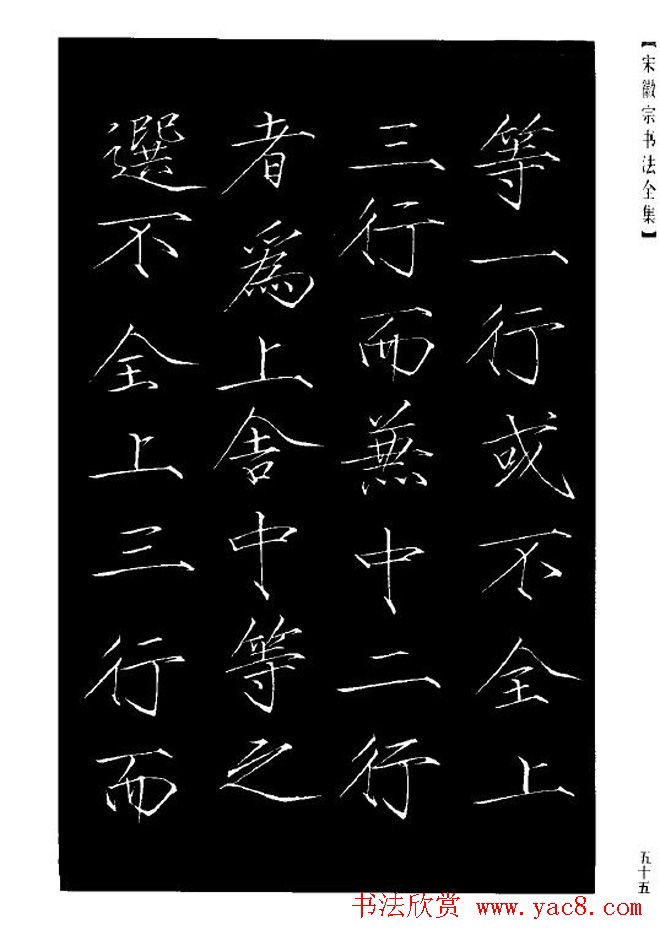 【宋徽宗书法全集】
等一行或不全上
三行而兼中二行
者為上舍中等之
選不全上三行而
五十五
书法欣赏 www.yac8.com